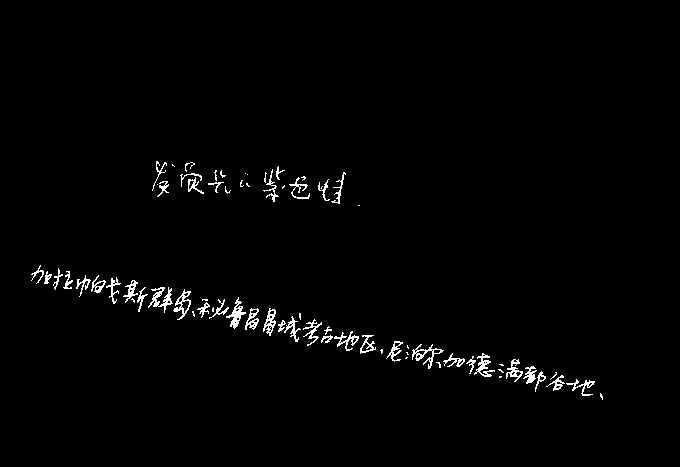 紫色
加拉帕戈斯群岛、秘鲁昌昌城考古地区、尼泊尔加德满都谷地、